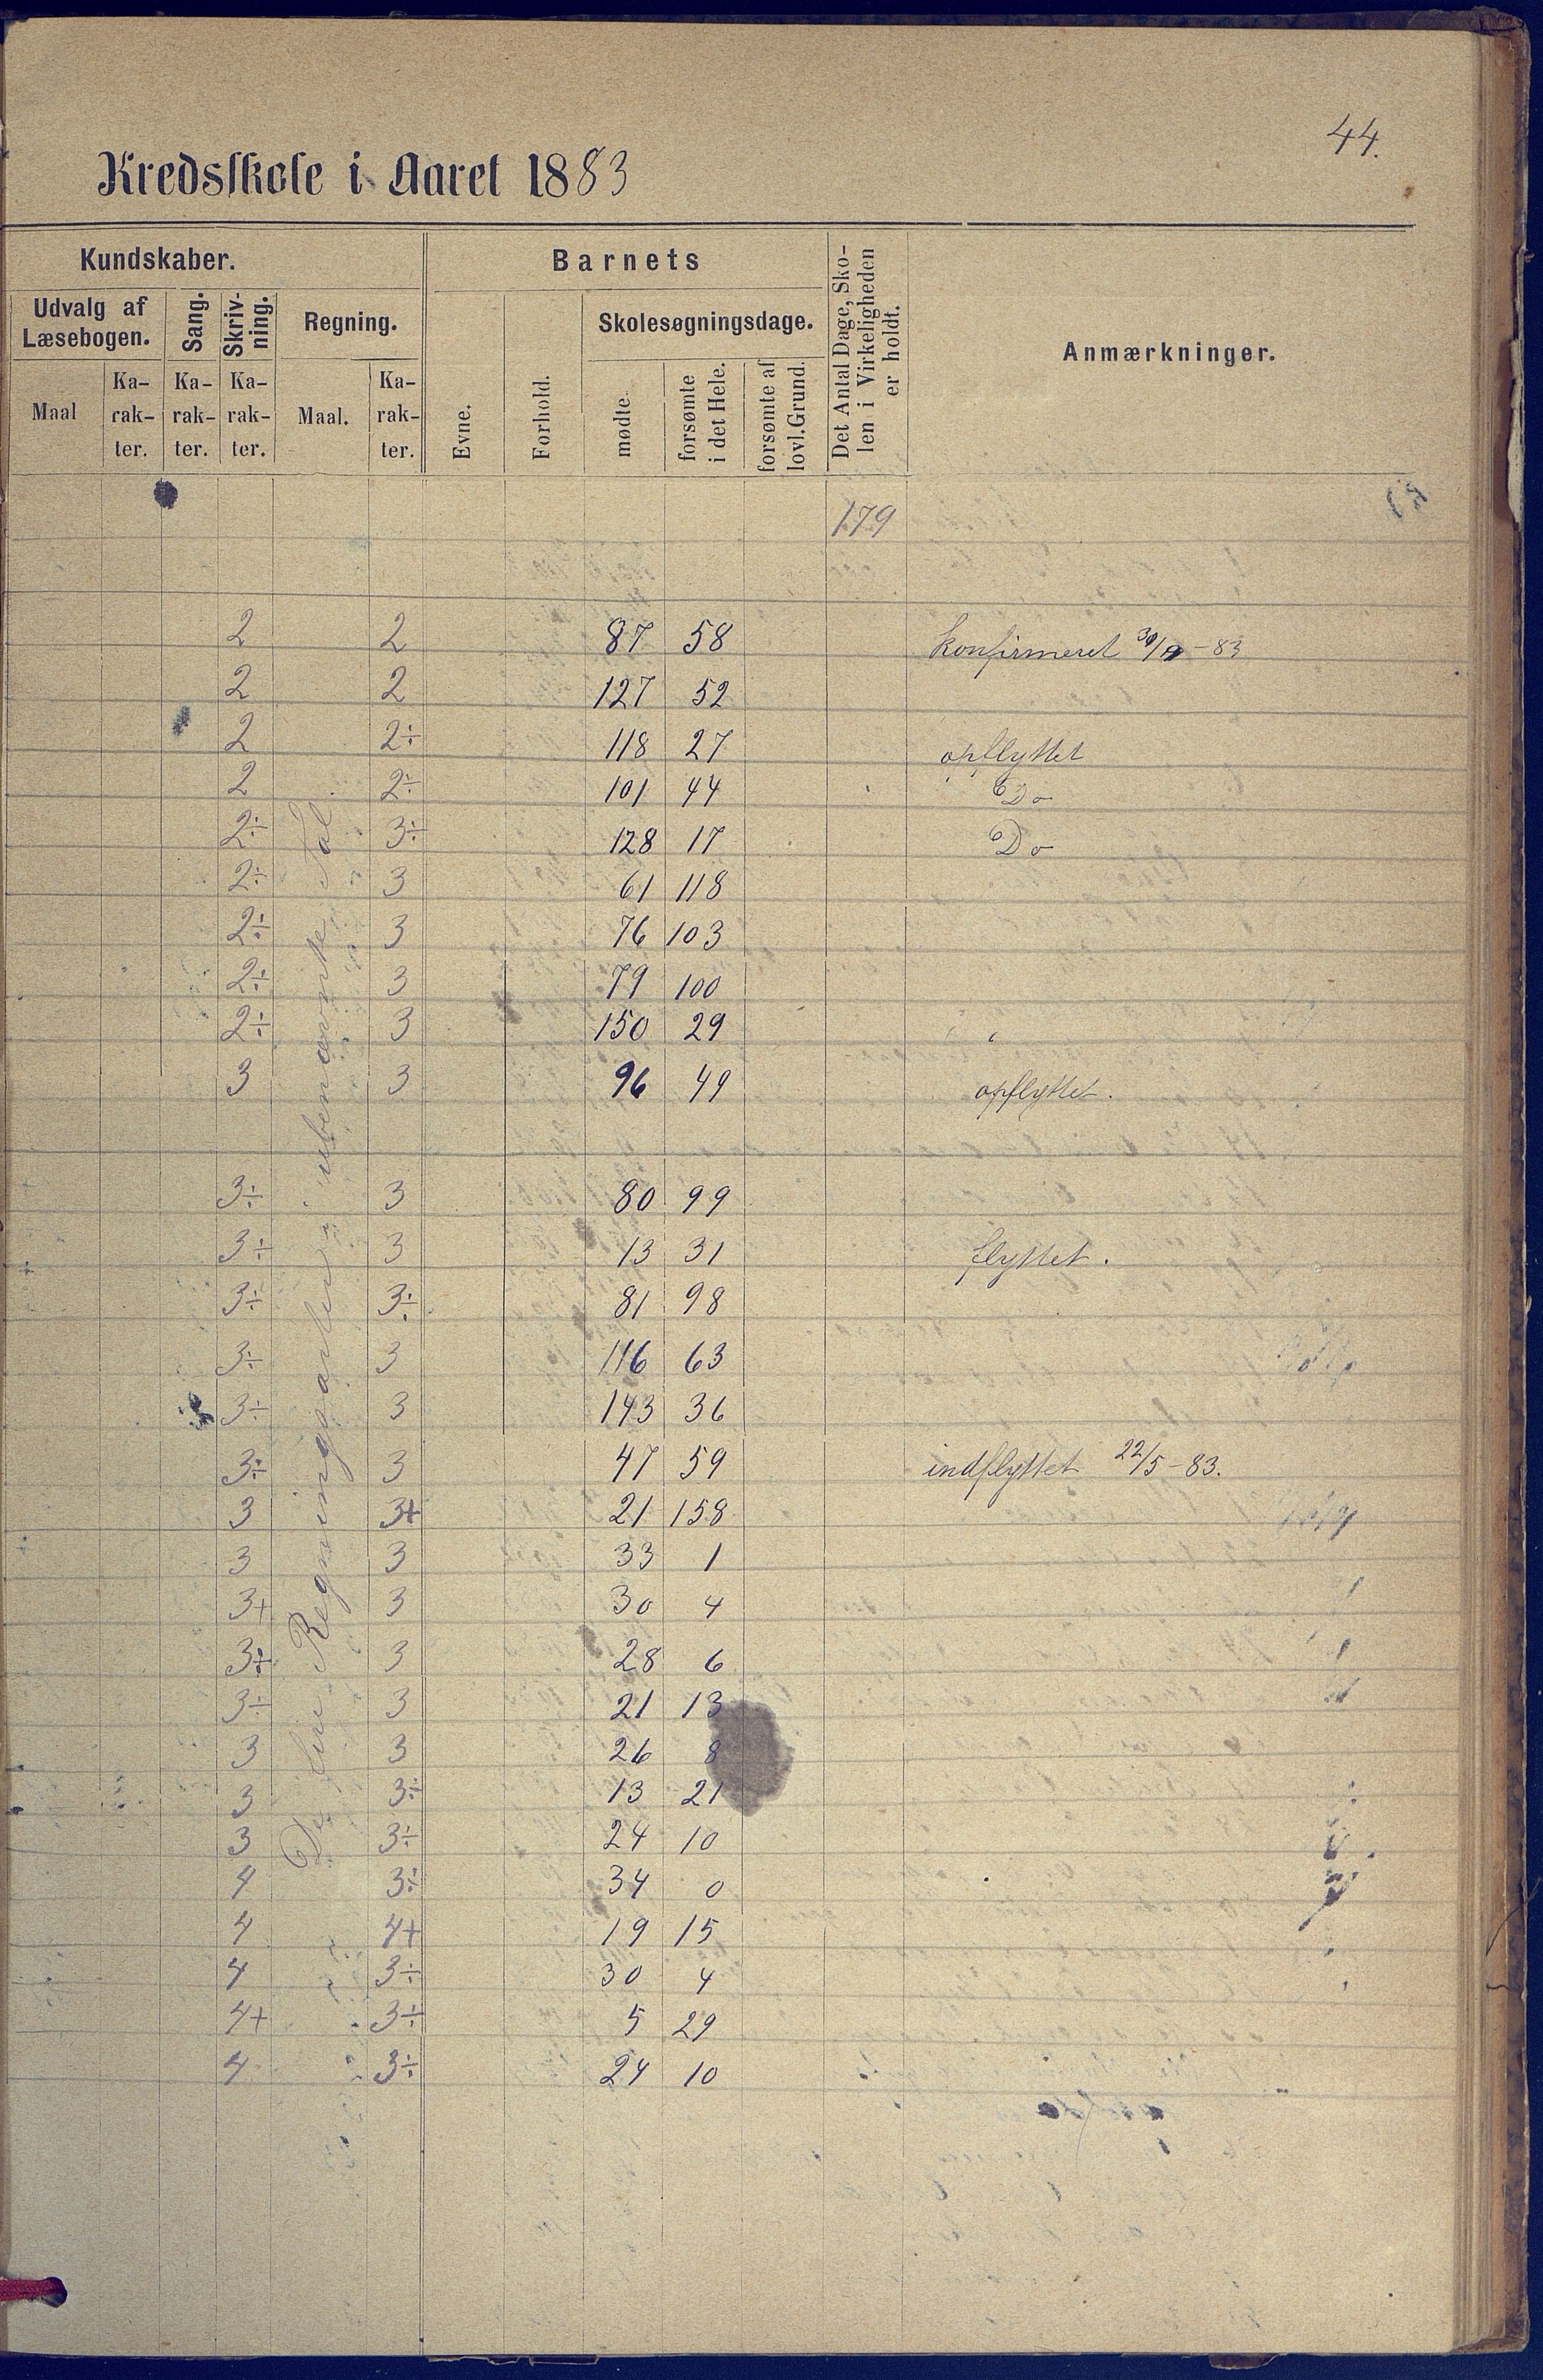 44.
Kredsskole i Aaret 1883
Kundskaber.
Barnets
Det Antal Dage, Sko-
len i Virkeligheden
er holdt.
Anmærkninger.
Udvalg af
Læsebogen.
Sang.
Skriv-
ning.
Regning.
Evne.
Forhold.
Skolesøgningsdage.
Maal
Ka-
rak-
ter.
Ka-
rak-
ter.
Ka-
rak-
ter.
Maal.
Ka-
rak-
ter.
mødte.
forsømte
i det Hele.
forsømte af
lovl. Grund.
179
De fire Regningsarter i ubenævnte Tal
2 2 87 58 konfirmeret 30/9-83
2 2 127 52
2 2÷ 118 27 opflyttet
2 2÷ 101 44 Do
2÷ 3÷ 128 17 Do
2÷ 3 61 118
2÷ 3 76 103
2÷ 3 79 100
2÷ 3 150 29
3 3 96 49 opflyttet.
3÷ 3 80 99
3÷ 3 13 31 flyttet.
3÷ 3÷ 81 98
3÷ 3 116 63
3÷ 3 143 36
3÷ 3 47 59 indflyttet 22/5-83.
3 3+ 21 158
3 3 33 1
3+ 3 30 4
3÷ 3 28 6
3÷ 3 21 13
3 3 26 8
3 3÷ 13 21
3 3÷ 24 10
4 3÷ 34 0
4 4+ 19 15
4 3÷ 30 4
4+ 3÷ 5 29
4 3÷ 24 10